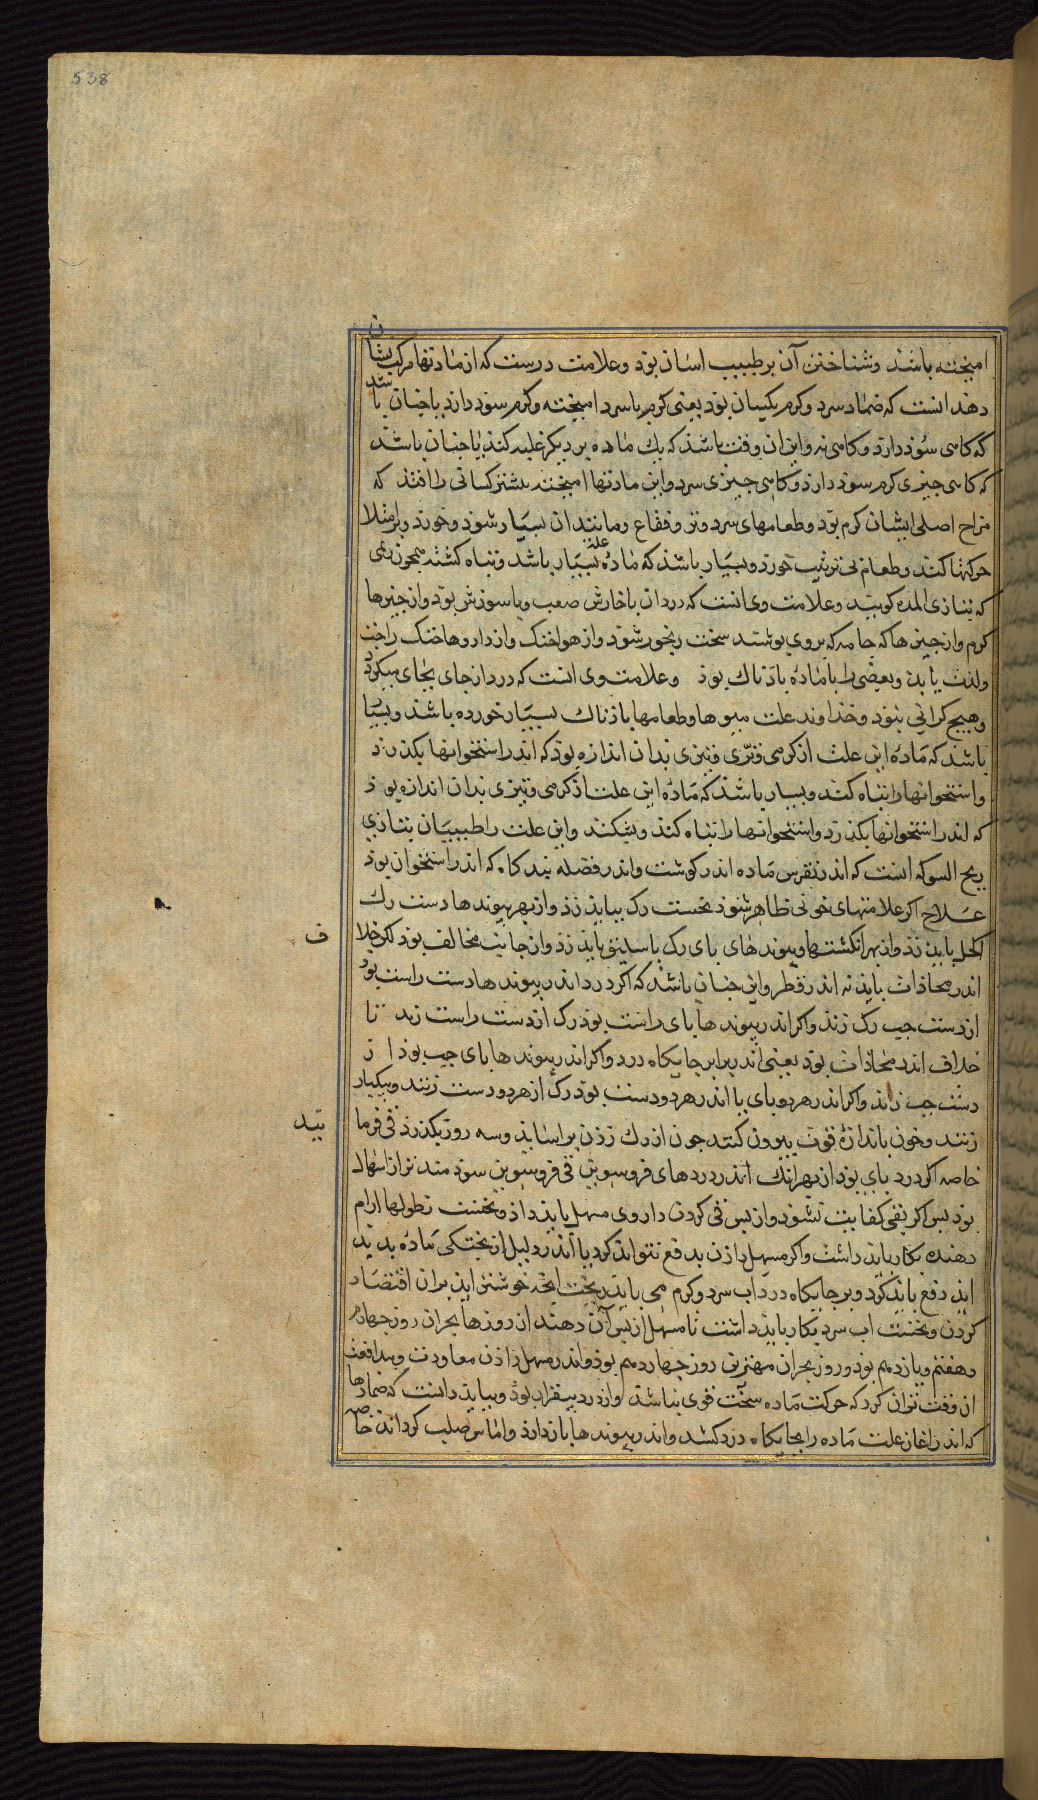 538
امیخته باشد و شناختن آن بر طبیب اسان بوذ و علامت درست که از مادتها مرکب نشان
دهد انست که ضماد سرد و کرم یکسان بوذ یعنی کرم با سرد امیخته و کرم سوذ دارد یا جنان باشد
که کاهی سوذ دارد و کاهی نه و این ان وقت باشذ که یک ماده بر دیکر غلبه کند یا جنان باشد
که کاهی جیزی کرم سوذ دارذ و کاهی جیزی سرد و این مادتها امیخته بیشتر کسانی را افتذ که
مزاج اصلی ایشان کرم بوذ و طعامهای سرد و تر و فقاع و مانند ان بسیار شوذ و خورد و بر امتلا
حرکتها کند و طعام بی ترتیب خورد و بسیار باشذ که ماده علة بسیار باشد و تباه کشته همجون ریمی
که بتازی المده کویند و علامت وی انست که درد ان با خارش صعب و با سوزش بوذ و از جیزها
کرم و از جیزها که جامه که بروی بوشند سخت رنجور شوذ و از هوا خنک و از داروها خنک راحت
و لذت یابذ و بعضی را با ماده باذ ناک بوذ و علامت وی انست که درد از جای بجای میکردد
و هیج کرانی نبوذ و خذاوند علت میوها و طعامها باذ ناک بسیار خورده باشذ و بسیا
باشد که ماده این علت از کرمی و تری و تیزی بدان اندازه بوذ که اندر استخوانها بکذرد
و استخوانها را تباه کند و بسیار باشذ که ماده این علت از کرمی و تیزی بدان اندازه بوذ
که اندر استخوانها بکذرد و استخوانها را تباه کند و بشکند و این علت را طبیبان بتازی
ریح السوکه انست که اندر نقرس ماده اندر کوشت و اندر فضله بندکاه که اندر استخوان بوذ
علاج اکر علامتهای خونی ظاهر شوذ نخست رک بباید زذ و از بهر بیوندها دست رک
اکحل باید زذ و از بهر انکشتها و بیوندهای بای رک باسلیق باید زذ و از جانب مخالف بوذ لکن خلا
ف
اندر محاذات باید نه اندر قطر و این جنان باشذ که اکر درد اندر بیوندها دست راست بوذ
از دست جب رک زنذ و اکر اندر بیوندها بای راست بوذ رک از دست راست زند تا
خلاف اندر محاذات بوذ یعنی اندر برابر جایکاه درد و اکر اندر بیوندها بای جب بوذ از
دست جب زنذ و اکر اندر هر دو بای یا اندر هر دو دست بوذ رک از هر دو دست زنند و بیکبار
زنند و خون باندازه قوت بیرون کنند جون از رک زذن براسایذ و سه روز بکذرد قی فرما
یند
خاصه اکر درد بای بوذ از بهر انک اندر دردهای فروسوین قی فروسوین سوذ مندتر از اسهال
بوذ بس اکر بقی کفایت نشوذ و از بس قی کردن داروی مسهل باید داذ و نخست نطولها ارام
دهنده بکار باید داشت و اکر مسهل داذن بدفع نتواند کرد یا اندر دلیل از بختکی ماده بدید
اید دفع باید کرد و بر جایکاه درد اب سرد و کرم می باید ریخت انجه خوشتر اید بران اقتصاد
کردن و نخست اب سرد بکار باید داشت تا مسهل از بس آن دهند ان روزها بحران روز جهارم
و هفتم و یازدهم بوذ و روز بحران مهترین روز جهاردهم بوذ و اندر مسهل داذن معاودت و مدافعت
ان وقت توان کرد که حرکت ماده سخت قوی نباشذ و از درد بیقرار بوذ و بباید دانست که ضمادها
که اندر اغاز علت ماده را بجایکاه درد کشد و اندر بیوندها باز دارد و اماس صلب کرداند خاصه